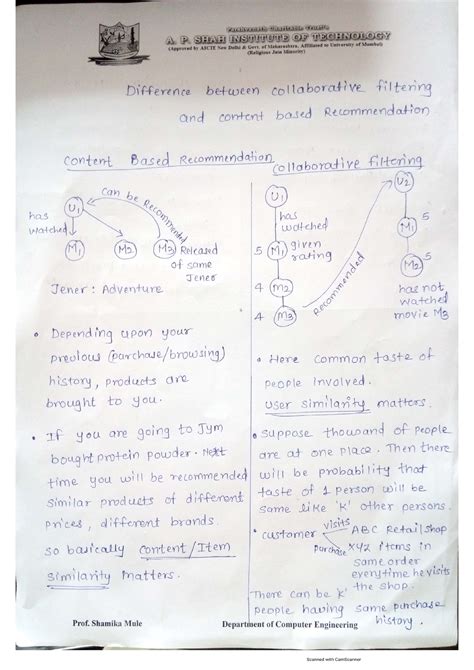 Parshvanath Charitable Trust's
A. P. SHAH INSTITUTE OF TECHNOLOGY
(Approved by AICTE New Delhi & Govt. of Maharashtra, Affiliated to University of Mumbai)
(Religious Jain Minority)
Difference between collaborative filtering
and content based Recommendation
Content Based Recommendation
U1
can be Recommended
has
watched
M1
M2
M3
Released
of same
Jener
Jener : Adventure
• Depending upon your
previous (purchase/browsing)
history, products are
brought to you.
• If you are going to Jym
bought protein powder. Next
time you will be recommended
similar products of different
prices, different brands.
so basically content/Item
similarity matters.
collaborative filtering
U1
U2
has
watched
5 M1 given
rating
4 M2
4 M3
Recommended
M1 5
M2 5
has not
watched
movie M3
• Here common taste of
people involved.
User similarity matters.
• Suppose thousand of people
are at one place. Then there
will be probability that
taste of 1 person will be
same like 'K' other persons.
• customer visits ABC Retail shop
purchase XYZ items in
same order
everytime he visits
the shop.
There can be 'K'
people having same purchase
history.
Prof. Shamika Mule
Department of Computer Engineering
Scanned with CamScanner